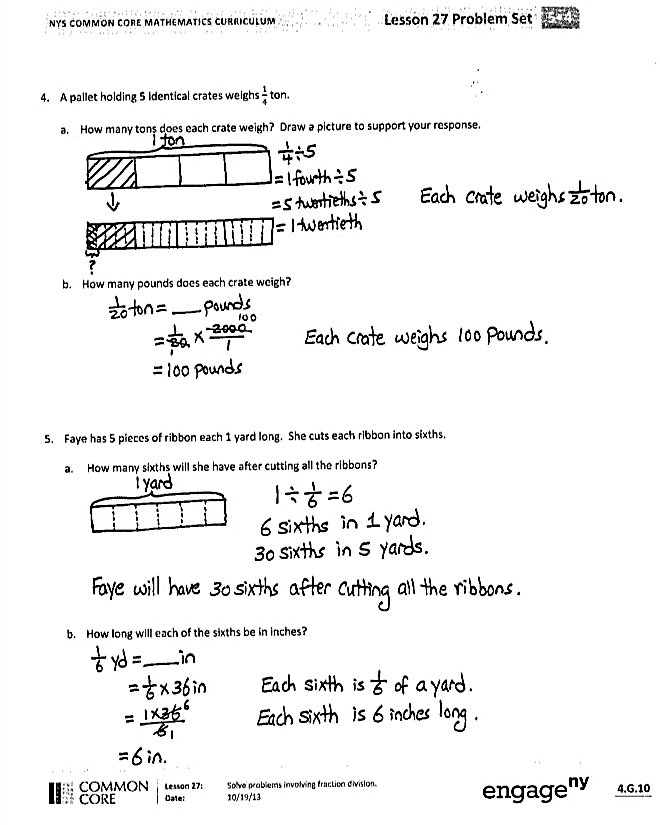 NYS COMMON CORE MATHEMATICS CURRICULUM Lesson 27 Problem Set
4. A pallet holding 5 identical crates weighs 1/4 ton.
a. How many tons does each crate weigh? Draw a picture to support your response.
1 ton
1/4 ÷ 5
= 1 fourth ÷ 5
= 5 twentieths ÷ 5
= 1 twentieth
Each crate weighs 1/20 ton.
?
b. How many pounds does each crate weigh?
1/20 ton = __ pounds
= 1/20 × 2000/1
100
1
= 100 pounds
Each crate weighs 100 pounds.
5. Faye has 5 pieces of ribbon each 1 yard long. She cuts each ribbon into sixths.
a. How many sixths will she have after cutting all the ribbons?
1 yard
1 ÷ 1/6 = 6
6 sixths in 1 yard.
30 sixths in 5 yards.
Faye will have 30 sixths after cutting all the ribbons.
b. How long will each of the sixths be in inches?
1/6 yd = __ in
= 1/6 × 36 in
= 1×36/6
6
1
= 6 in.
Each sixth is 1/6 of a yard.
Each sixth is 6 inches long.
COMMON CORE
Lesson 27: Solve problems involving fraction division.
Date: 10/19/13
engage ny
4.G.10